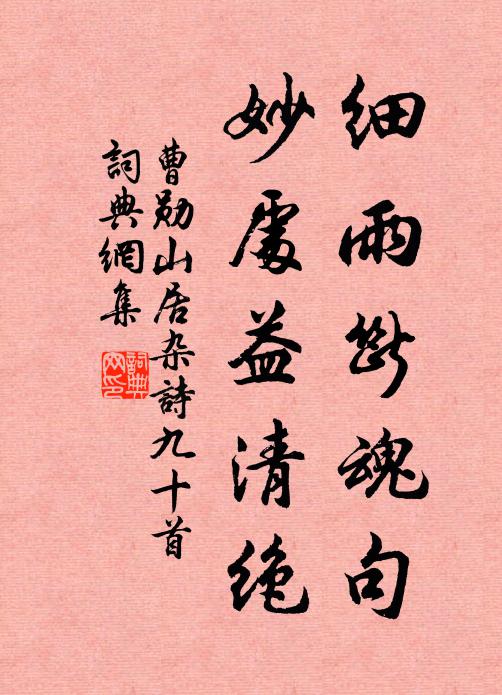 细雨断魂句
妙處益清绝
曹勛山居杂詩九十首
詞典網集
詞典网印